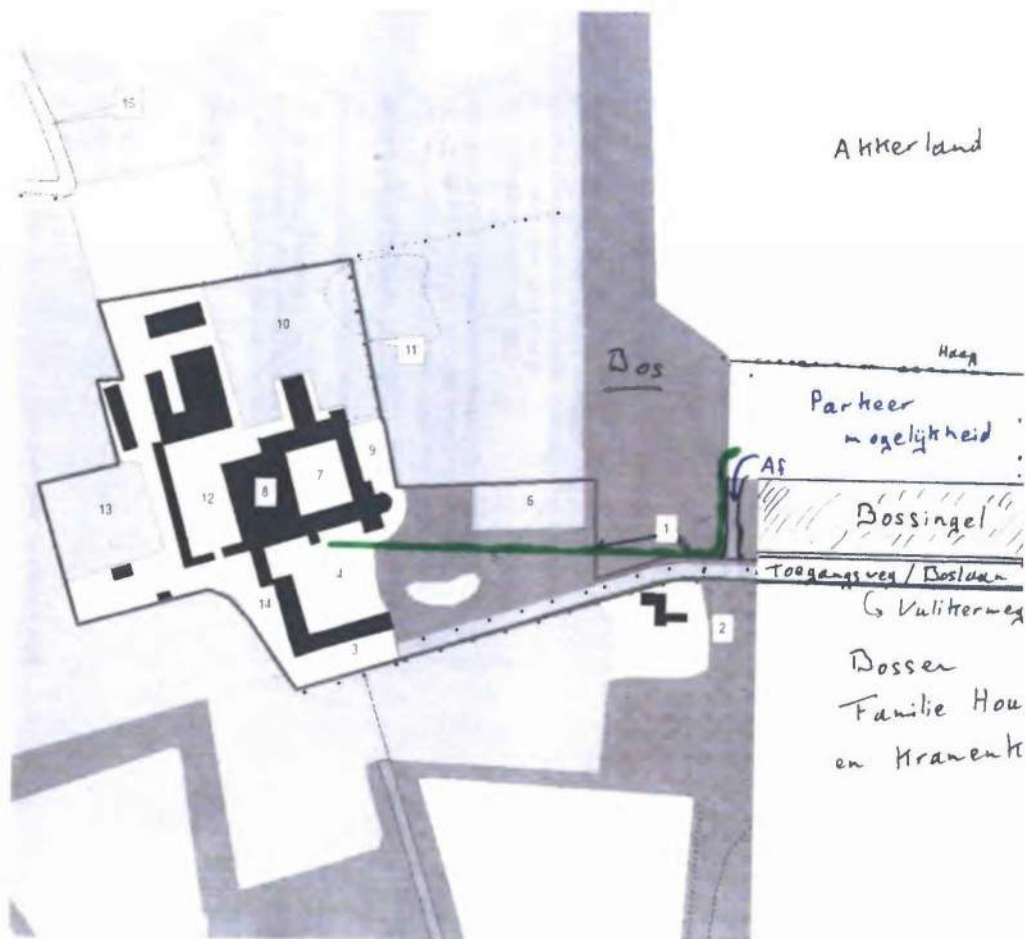 15
Akkerland
10
11
Bos
Haag
Parkeer
mogelijkheid
9
7
8
12
6
Af
13
Bossingel
1
4
Toegangsweg / Boslaan
14
↳ Vulikerweg
2
3
Bossen
Familie Hou
en Kranenk